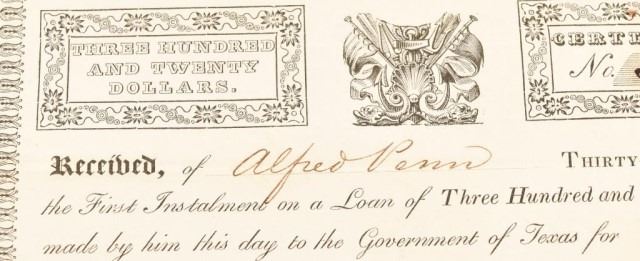 THREE HUNDRED
AND TWENTY
DOLLARS.
CERT
No.
Received, of Alfred Penn THIRTY
the First Instalment on a Loan of Three Hundred and
made by him this day to the Government of Texas for